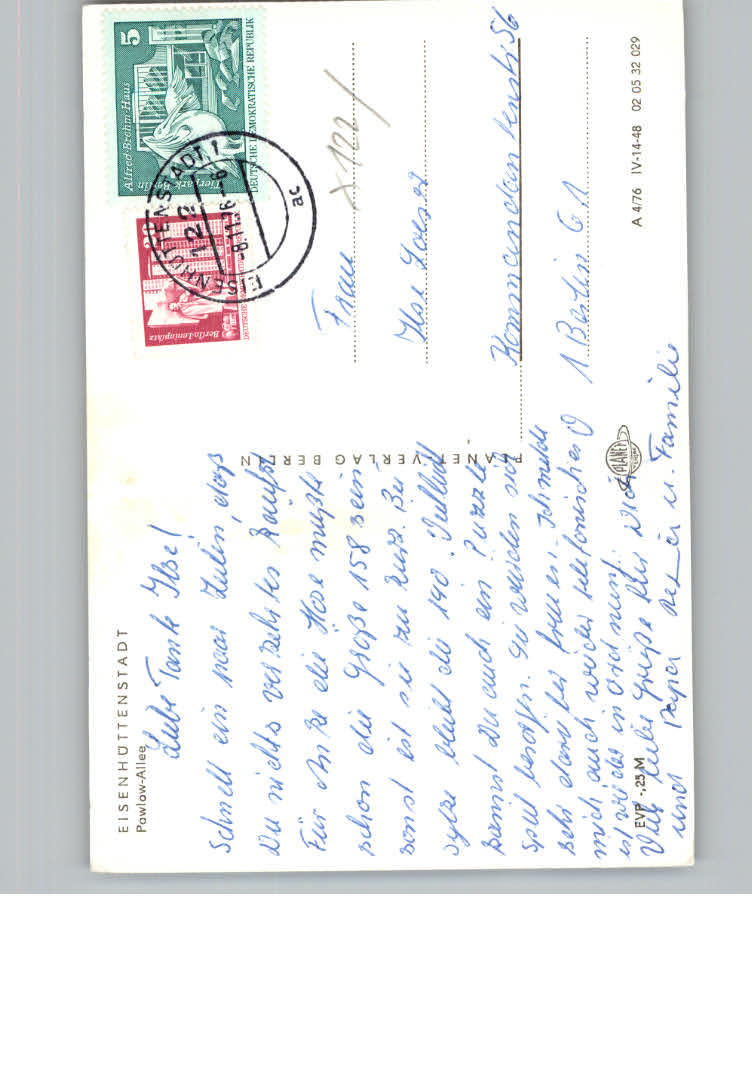 EISENHÜTTENSTADT
Pawlow-Allee
Liebe Tante Ilse!
Schnell ein paar Zeilen, daß
Du nichts verkehrtes kaufst.
Für die Hose müßte
schon die Größe 158 sein
sonst ist sie zu kurz. Bei
bleibt die 140. Vielleicht
kannst Du auch ein Puzzle
spiel besorgen. Sie würden sich
sehr darüber freuen.
mich auch wieder telefonisch
ist wieder in Ordnung.
Viele liebe Grüße
und Papa u. Familie
EVP -,25 M
PLANET-VERLAG BERLIN
PLANET
VERLAG
5
Alfred-Brehm-Haus
Tierpark Berlin
DEUTSCHE DEMOKRATISCHE REPUBLIK
20
Berlin-Leninplatz
DEUTSCHE DEMOKRATISCHE
EISENHÜTTENSTADT 1
122
-8.11.76-6
ac
X 122/
Frau
Ilse
Kommandantenstr. 56
1 Berlin 61
A 4/76 IV-14-48 02 05 32 029